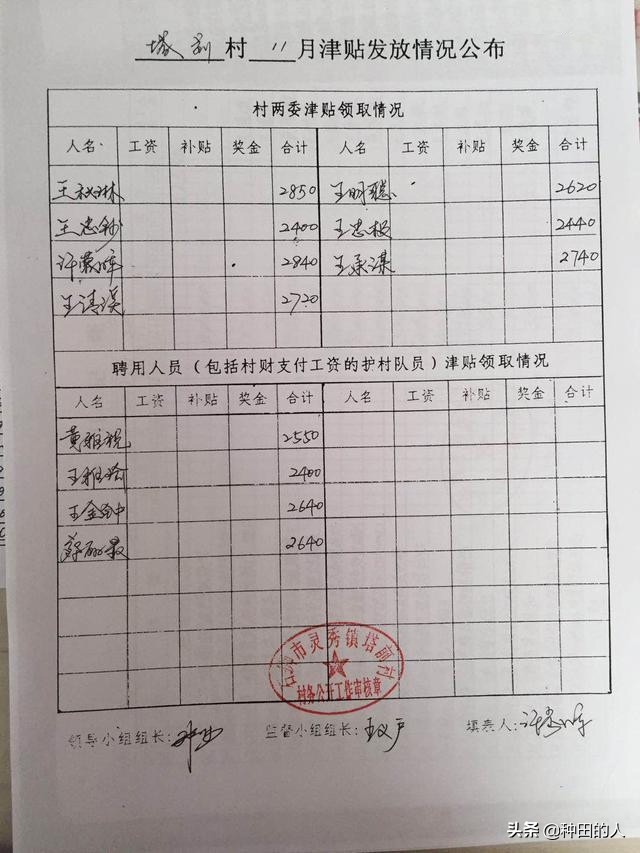 塔前村 11月津贴发放情况公布
村两委津贴领取情况
人名 工资 补贴 奖金 合计 人名 工资 补贴 奖金 合计
2850 王明聪 2620
王忠 2400 王忠 2440
许 2840 王 2740
王清 2720
聘用人员(包括村财支付工资的护村队员)津贴领取情况
人名 工资 补贴 奖金 合计 人名 工资 补贴 奖金 合计
黄雅 2550
王雅 2400
王金 2640
2640
石狮市灵秀镇塔前村
村务公开工作审核章
领导小组组长: 监督小组组长: 填表人:
头条 @种田的人